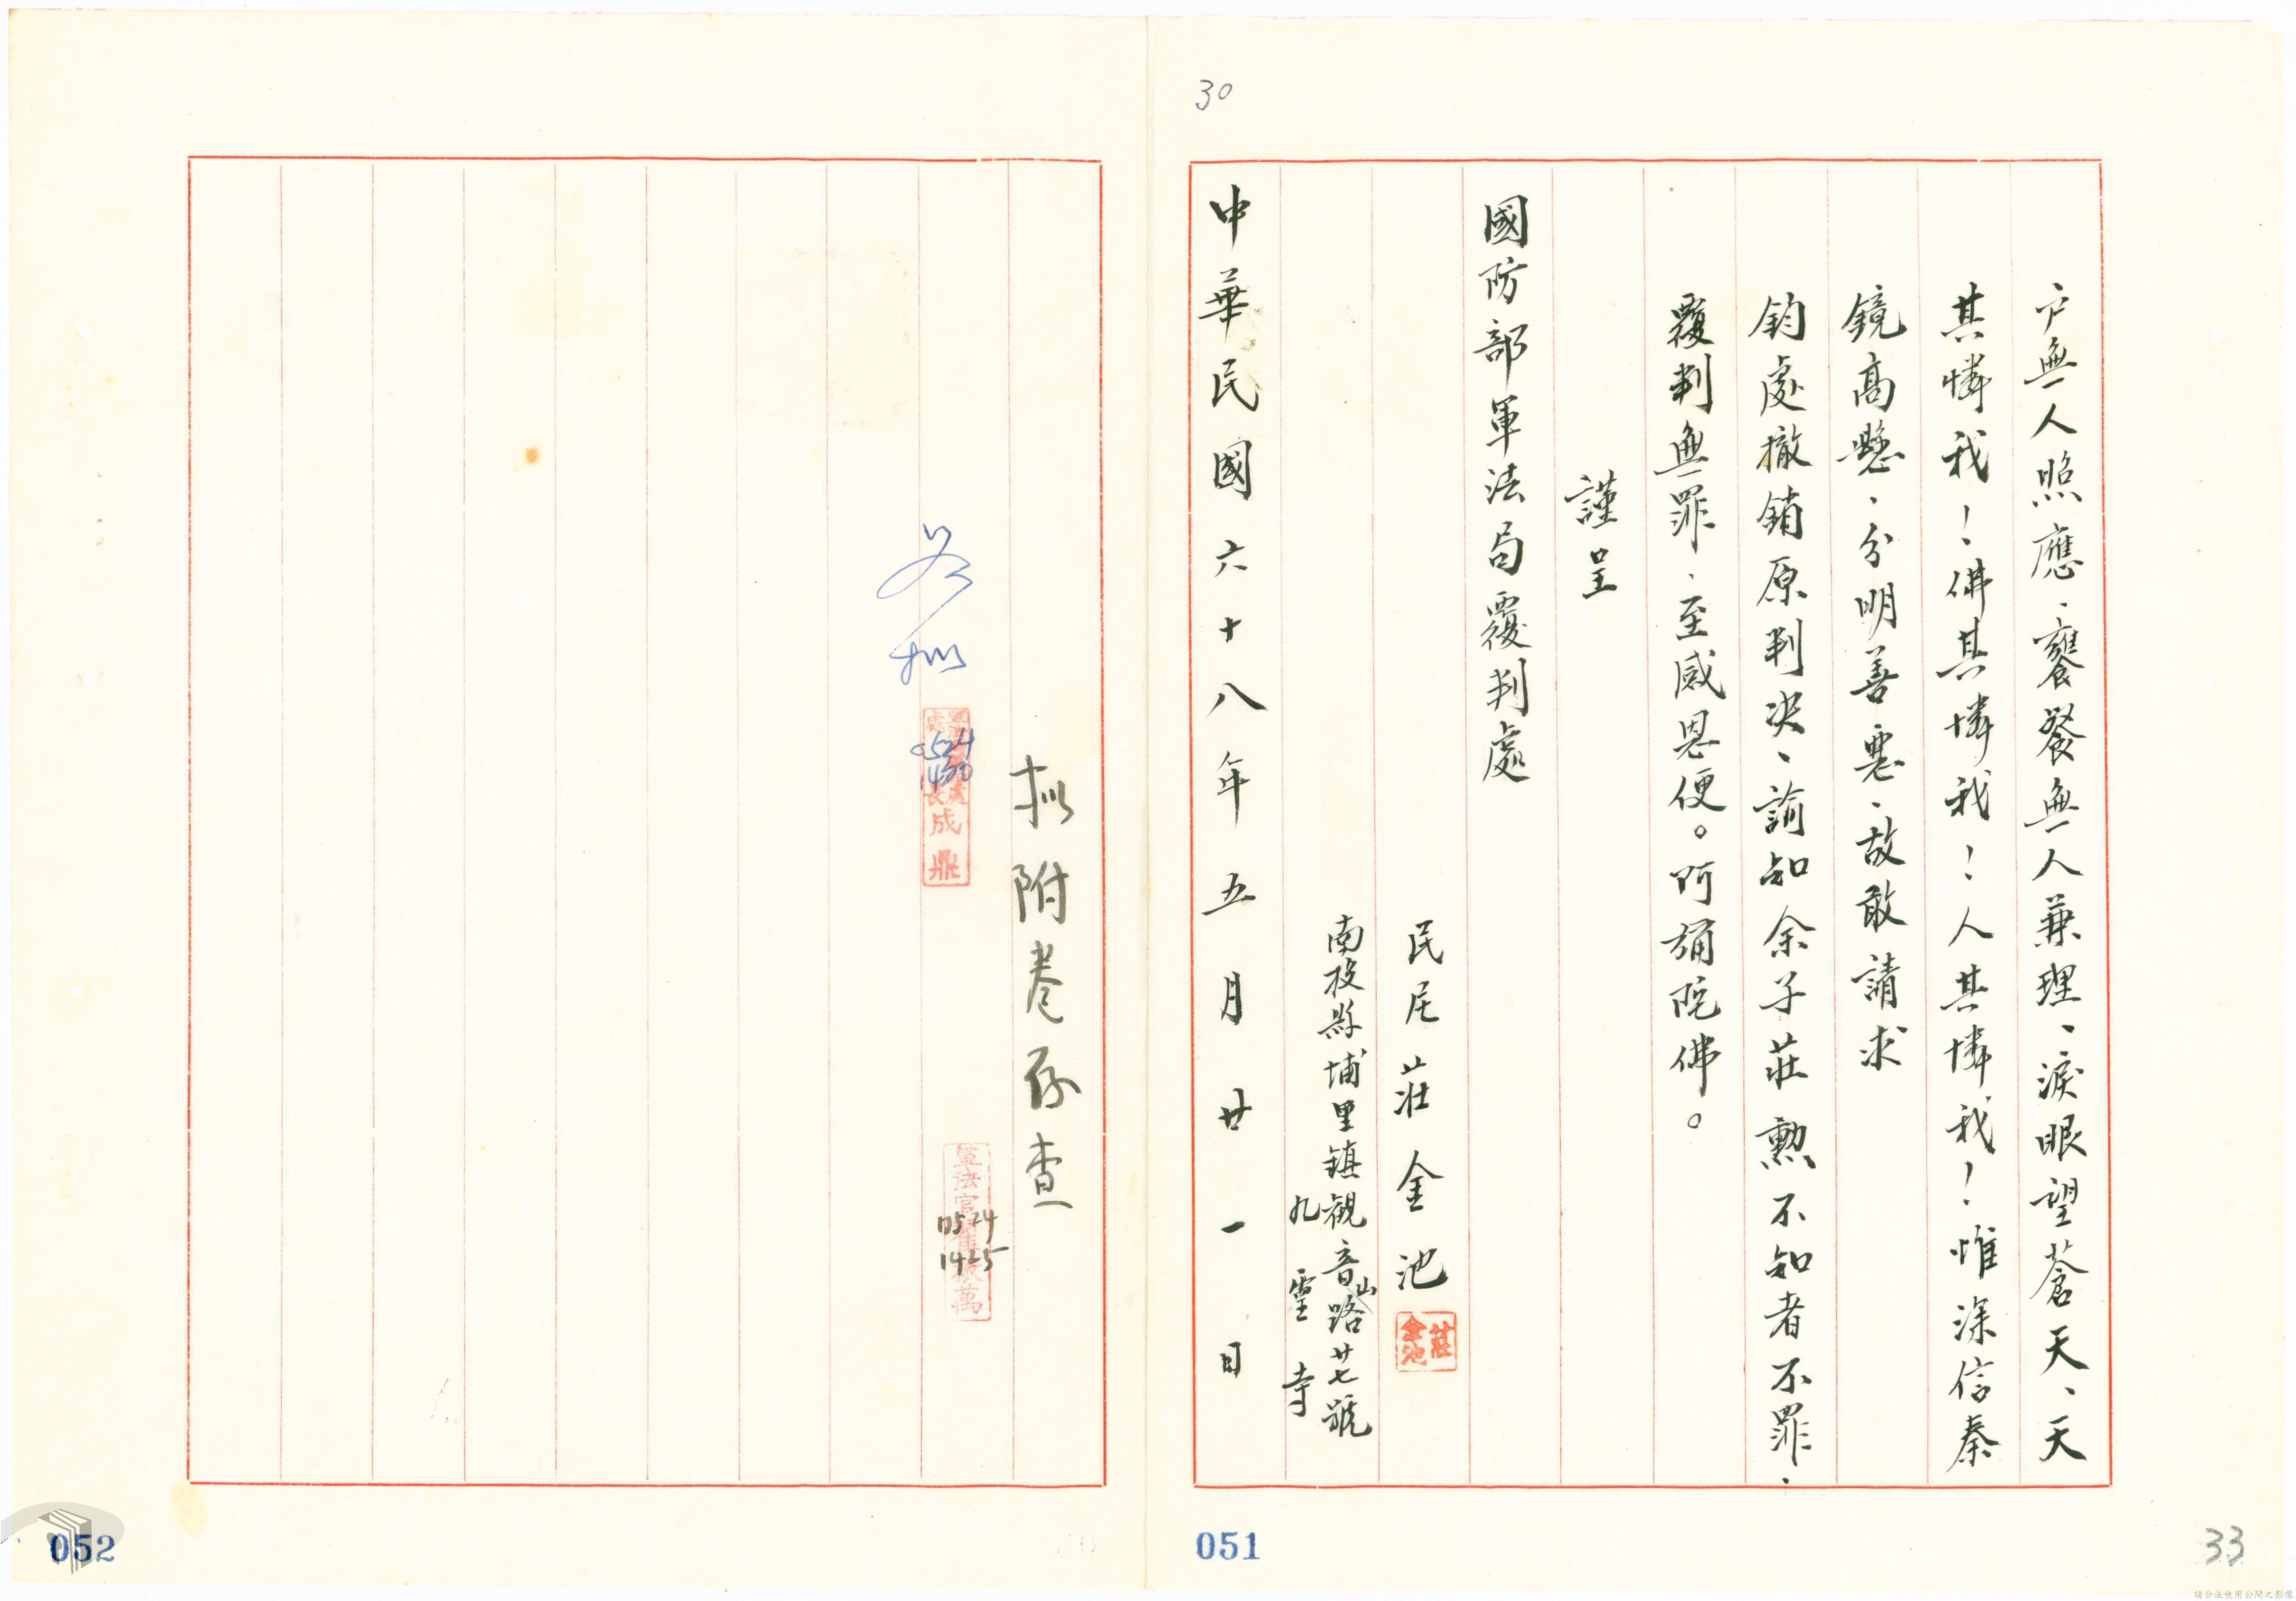 30
戶無人照應、饔餮無人兼理、淚眼望蒼天、天
其憐我！佛其憐我！人其憐我！惟深信秦
鏡高懸、分明善惡、故敢請求
鈞處撤銷原判決、諭知余子莊勲不知者不罪、
覆判無罪、至感恩便。阿彌陀佛。
謹呈
國防部軍法局覆判處
民尼莊金池
莊金池
南投縣埔里鎮觀音山路廿七號
九靈寺
中華民國六十八年五月廿一日
051
33
擬附卷存查
軍法官
萬
0524
1425
擬
成鼎
0524
1430
052
請合法使用公開之影像